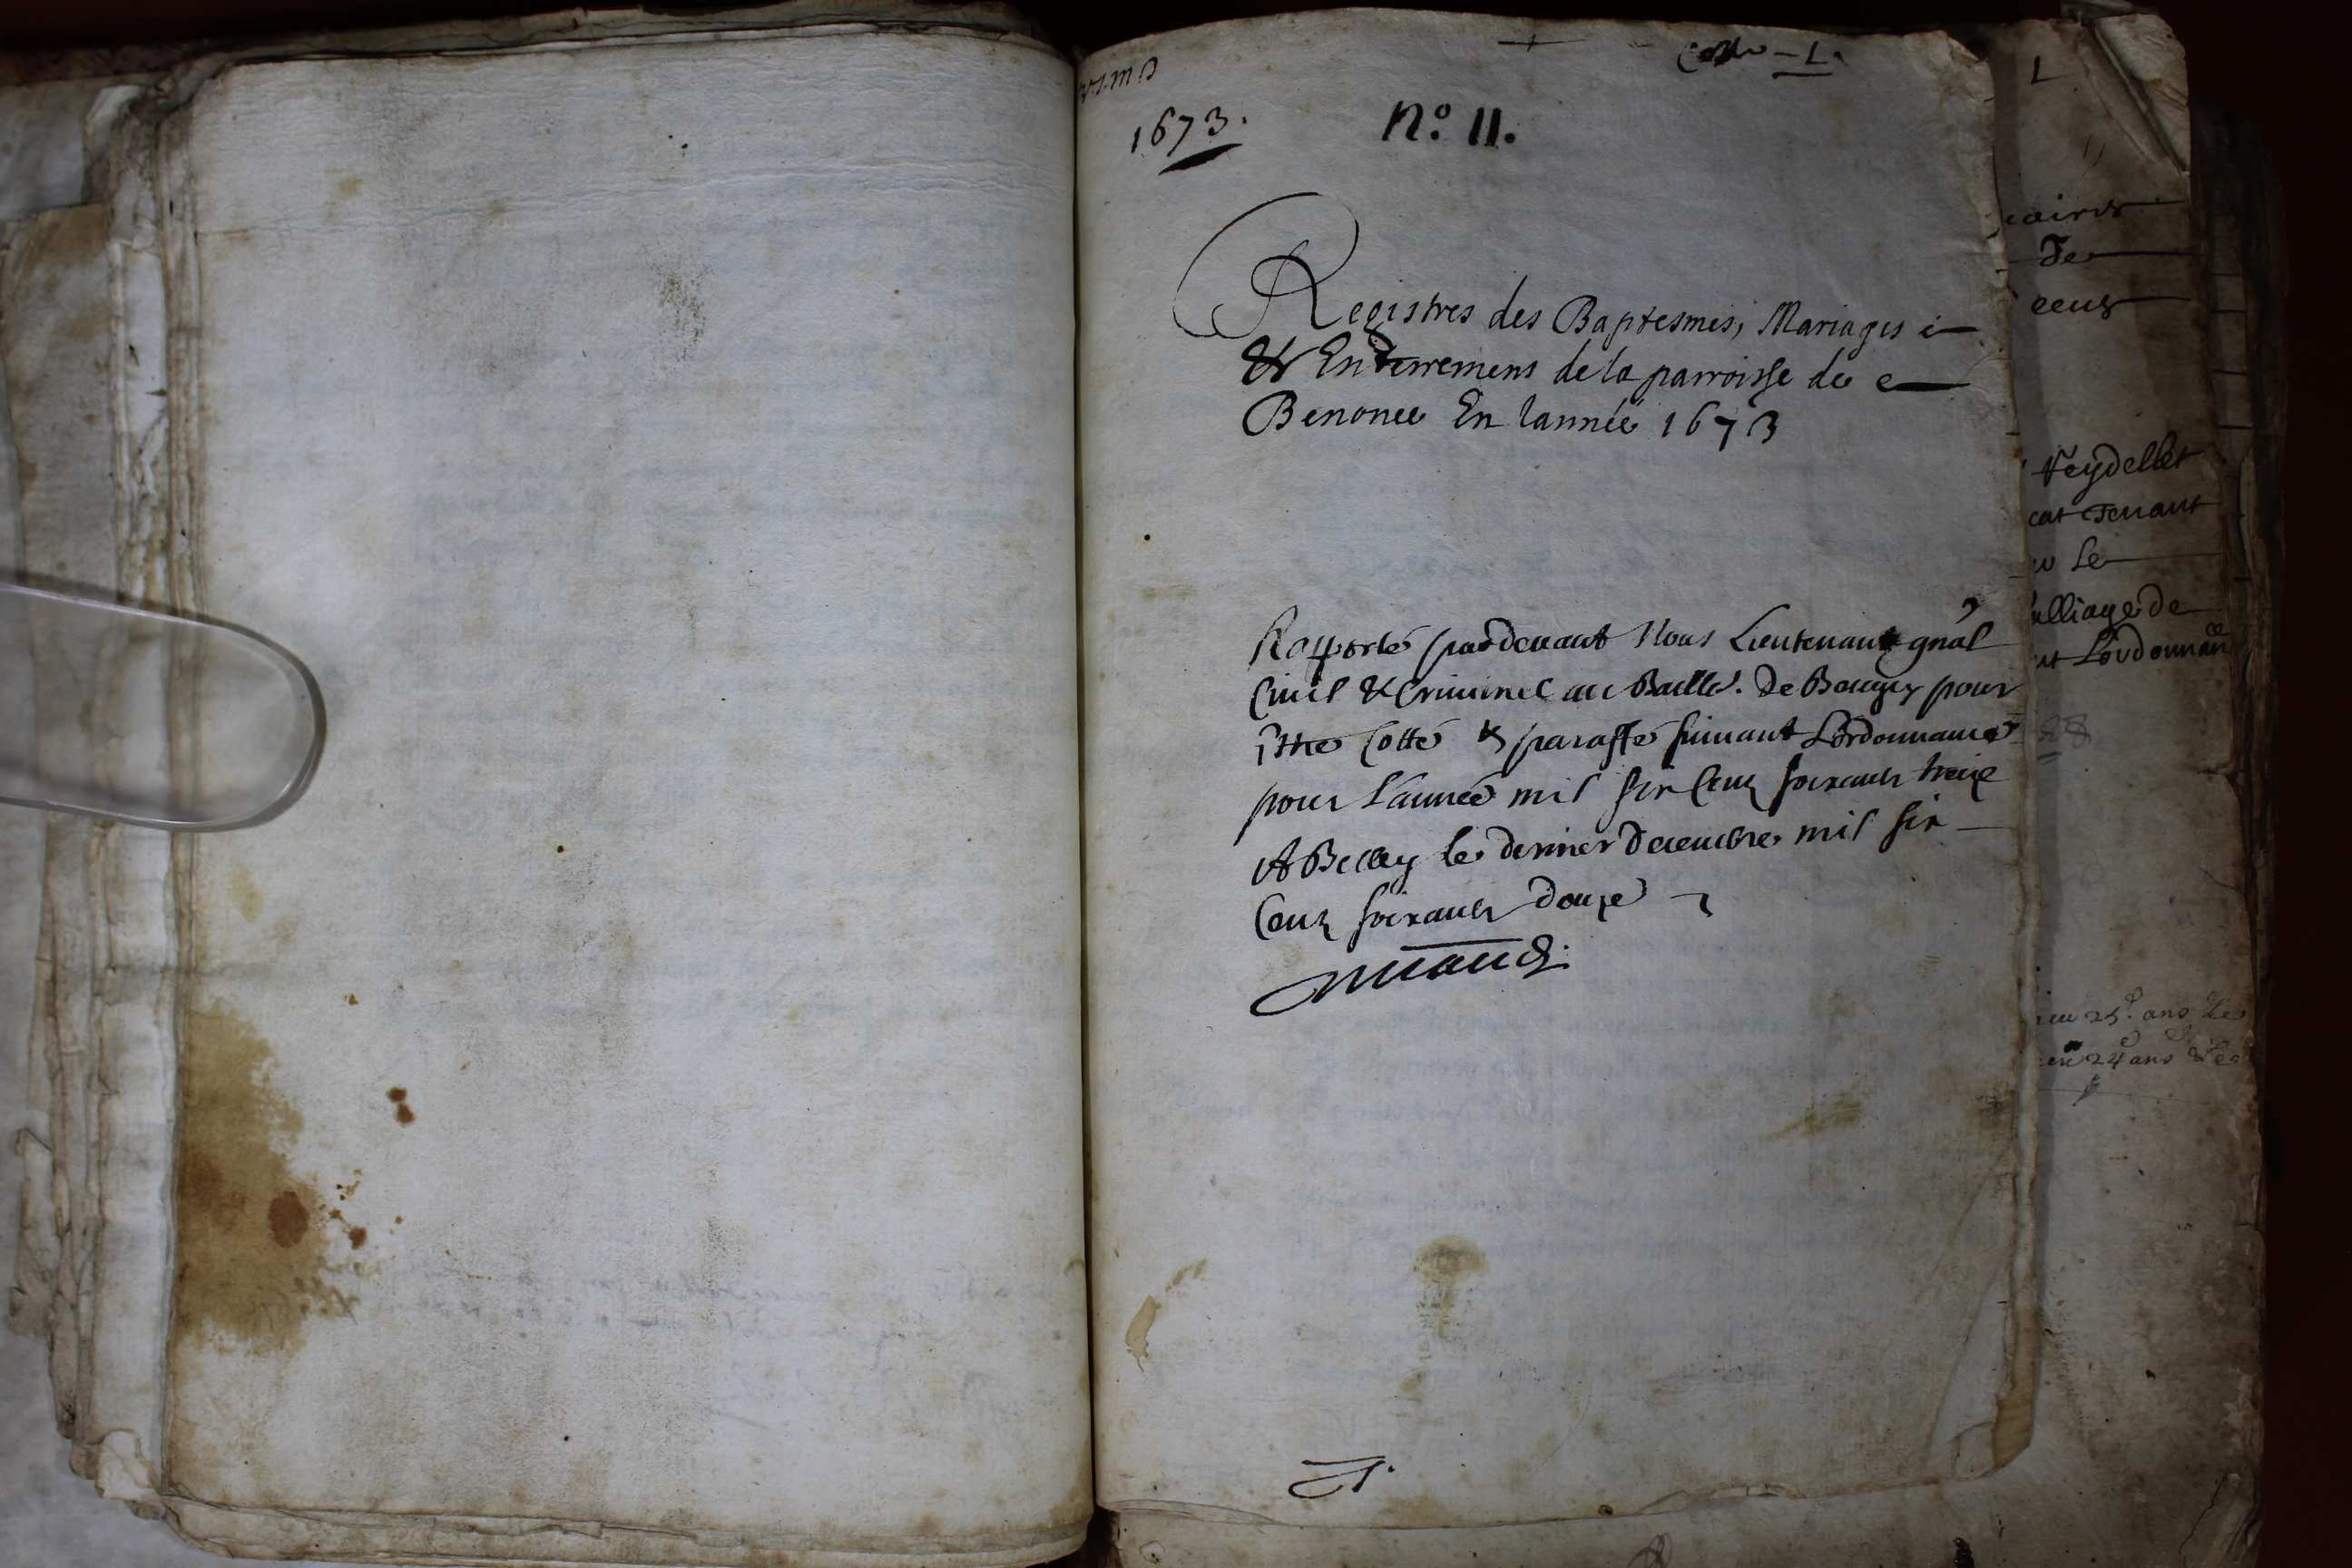 1673.
n.º 11.
Registres des Baptesmes, Mariages
& Enterremens de la parroisse de
Benonce En lannée 1673
Rapporté pardeuant Nous Lieutenant gnâl
Ciuil & Criminel au Baille. De Beugey pour
estre Cotté & paraffé suiuant Lordonnance
pour L'année mil six Cent soixante treize
A Belley le dernier Decembre mil six
Cent soixante douze
L
Te
ceus
Veydellet
cat Tenant
Le
alliage de
Lordonnance
25. ans
24 ans